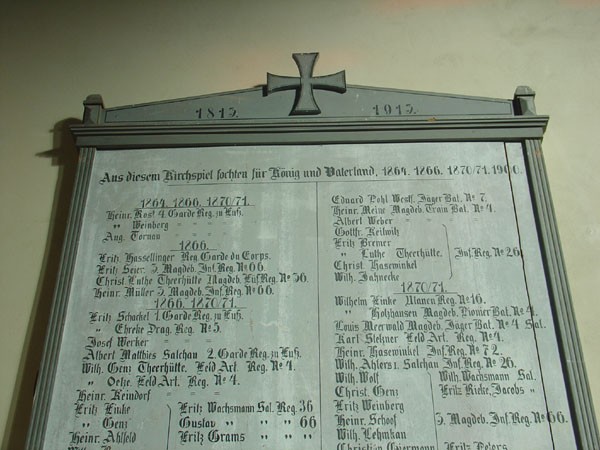 1813. 1913.
Aus diesem Kirchspiel fochten für König und Vaterland, 1864. 1866. 1870/71. 1900.
1864. 1866. 1870/71.
Heinr. Rost 4. Garde Reg. zu Fuß.
„ Weinberg „ „ „ „
Aug. Tornau „ „ „ „
1866.
Fritz Hassellinger Reg. Garde du Corps.
Fritz Seier. 3. Magdeb. Inf. Reg. No 66.
Christ. Luthe Theerhütte Magdeb. Füs. Reg. No 36.
Heinr. Müller 3. Magdeb. Inf. Reg. No 66.
1866. 1870/71.
Fritz Schackel 1. Garde Reg. zu Fuß.
„ Ehreke Drag. Reg. No 5.
Josef Werker „ „ „
Albert Matthies Salchau 2. Garde Reg. zu Fuß.
Wilh. Genz Theerhütte. Feld Art. Reg. No 4.
„ Oelze Feld Art. Reg. No 4.
Heinr. Keindorf „ „ „ „
Fritz Linke
„ Genz
Heinr. Ahlfeld
Fritz Wachsmann Sal. Reg. 36
Gustav „ „ „ 66
Fritz Grams „ „ „
Eduard Pohl Westf. Jäger Bat. No 7.
Heinr. Meine Magdeb. Train Bat. No 4.
Albert Weber „ „ „
Gottfr. Keilwitz
Fritz Bremer
„ Luthe Theerhütte.
Christ. Hasewinkel
Wilh. Jahnecke
Inf. Reg. No 26.
1870/71.
Wilhelm Linke Ulanen Reg. No 16.
„ Holzhausen Magdeb. Pionier Bat. No 4.
Louis Meerwald Magdeb. Jäger Bat. No 4 Sal.
Karl Stelzner Feld Art. Reg. No 4.
Heinr. Hasewinkel Inf. Reg. No 72.
Wilh. Ahlers 1. Salchau Inf. Reg. No 26.
Wilh. Wolf
Christ. Genz
Fritz Weinberg
Heinr. Schoof
Wilh. Lehmkau
Wilh. Wachsmann Sal.
Fritz Rieke, Jacobs „
3. Magdeb. Inf. Reg. No 66.
Fritz Peters